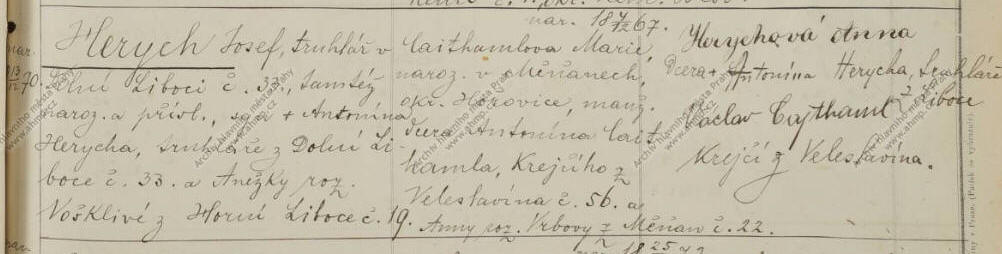 nar. 18 4/12 67.
Herych Josef, truhlář v
nar. 13/12 70. Dolní Liboci č. 33., tamtéž
naroz. a přísl., syn + Antonína
Herycha, truhláře z Dolní Li-
boce č. 33. a Anežky roz.
Vošklivé z Horní Liboce č. 19.
Caithamlova Marie
naroz. v Měňanech,
okr. Hořovice, manž.
dcera Antonína Cait-
hamla, Krejčího z
Veleslavína č. 56. a
Anny roz. Vrbovy z Měňan č. 22.
Herychová Anna
Dcera + Antonína Herycha, truhláře
z Liboce
Václav Cajthaml
Krejčí z Veleslavína.
Archiv hlavního města Prahy
www.ahmp.cz
18 25